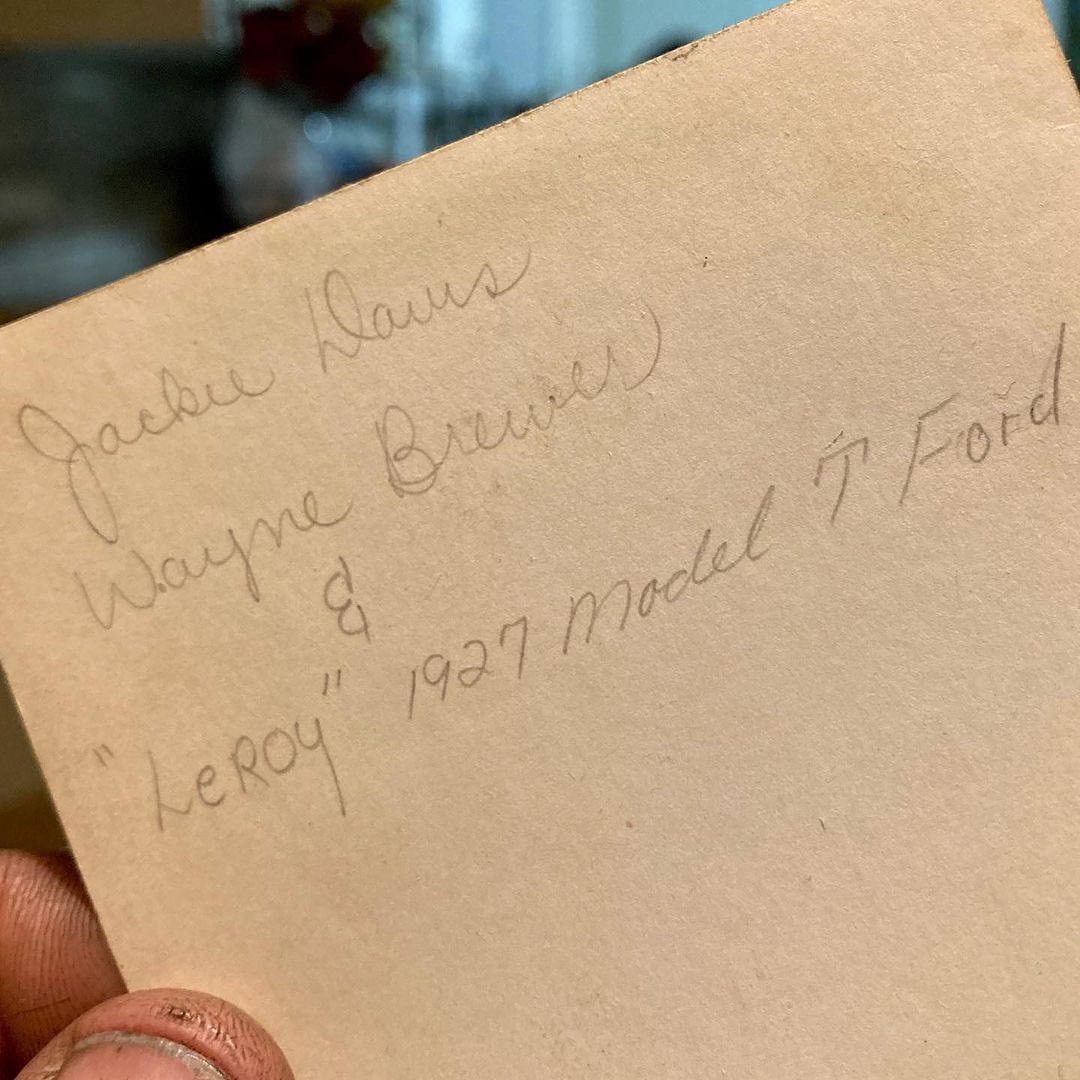 Jackie Davis
Wayne Brewer
&
"LeROY" 1927 Model T Ford